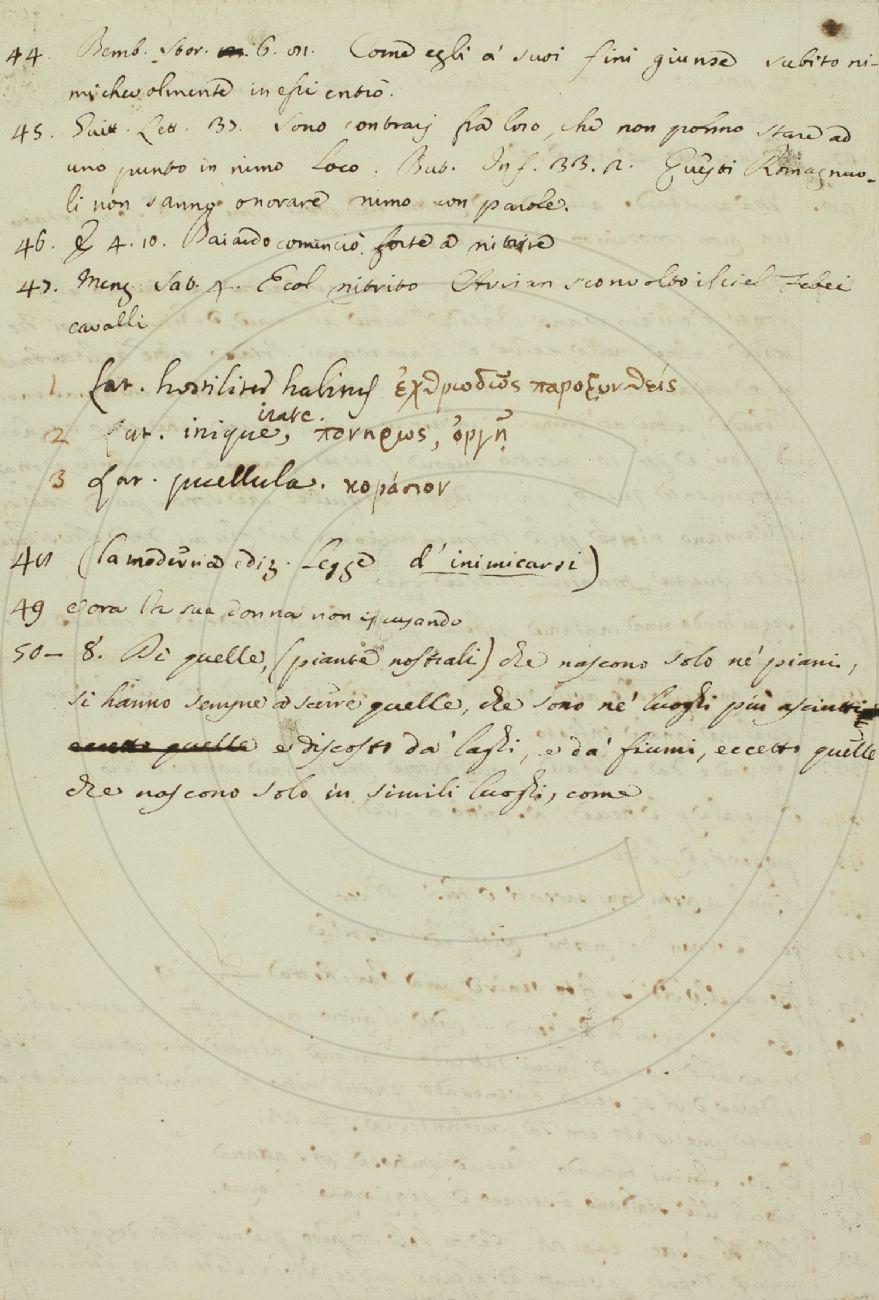 44. Bemb. Stor. 6. 81. Come egli a' suoi fini giunse subito ni-
michevolmente in essi entrò.
45. Guitt. Lett. 37. Sono contrarj fra loro, che non posono stare ad
uno punto in nimo loco. But. Inf. 33. 2. Questi Romagnuo-
li non sanno onorare nimo con parole.
46. 4. 10. Baiardo cominciò forte a nitrire
47. Menz. Sat. 4. E col nitrito Avrian sconvolto il ciel Febei
cavalli
1 Lat. hostiliter ἐχθριωδῶς παροξυνθείς
irate.
2 Lat. inique, πονηρως, ὀργῇ
3 Lat. puellula. κοράσιον
48 (la moderna ediz. legge d'inimicarsi)
49 e ora la sua donna non
50 – 8. Di quelle, (piante nostrali) che nascono solo ne' piani,
si hanno sempre a scerre quelle, che sono ne' luoghi più asciutti
eccetto quelle e discosto da' laghi, e da' fiumi, eccetto quelle
che nascono solo in simili luoghi, come